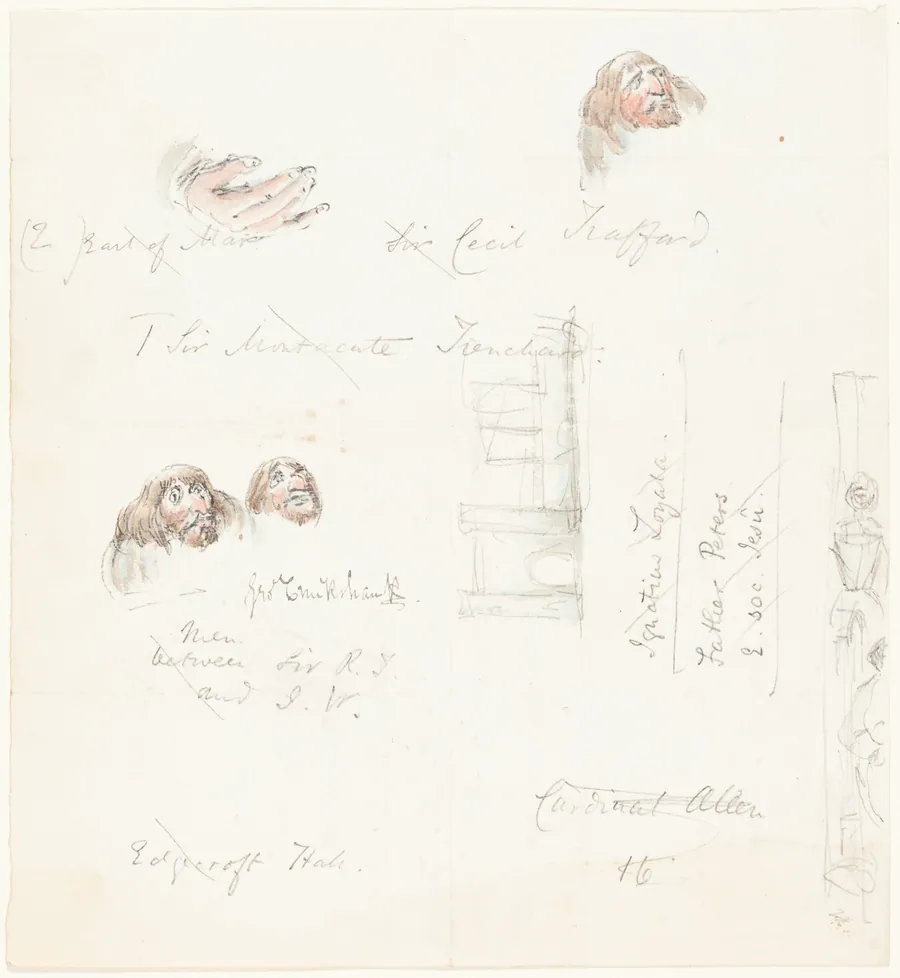 Earl of Mar
Sir Cecil Trafford.
Sir Montacute Trenchard.
Ignatius Loyala.
Father Peters
E. Soc. Jesu.
Geo Cruikshank
Men
between Sir R. T.
and J. W.
Cardinal Allen
16
Edgecroft Hall.